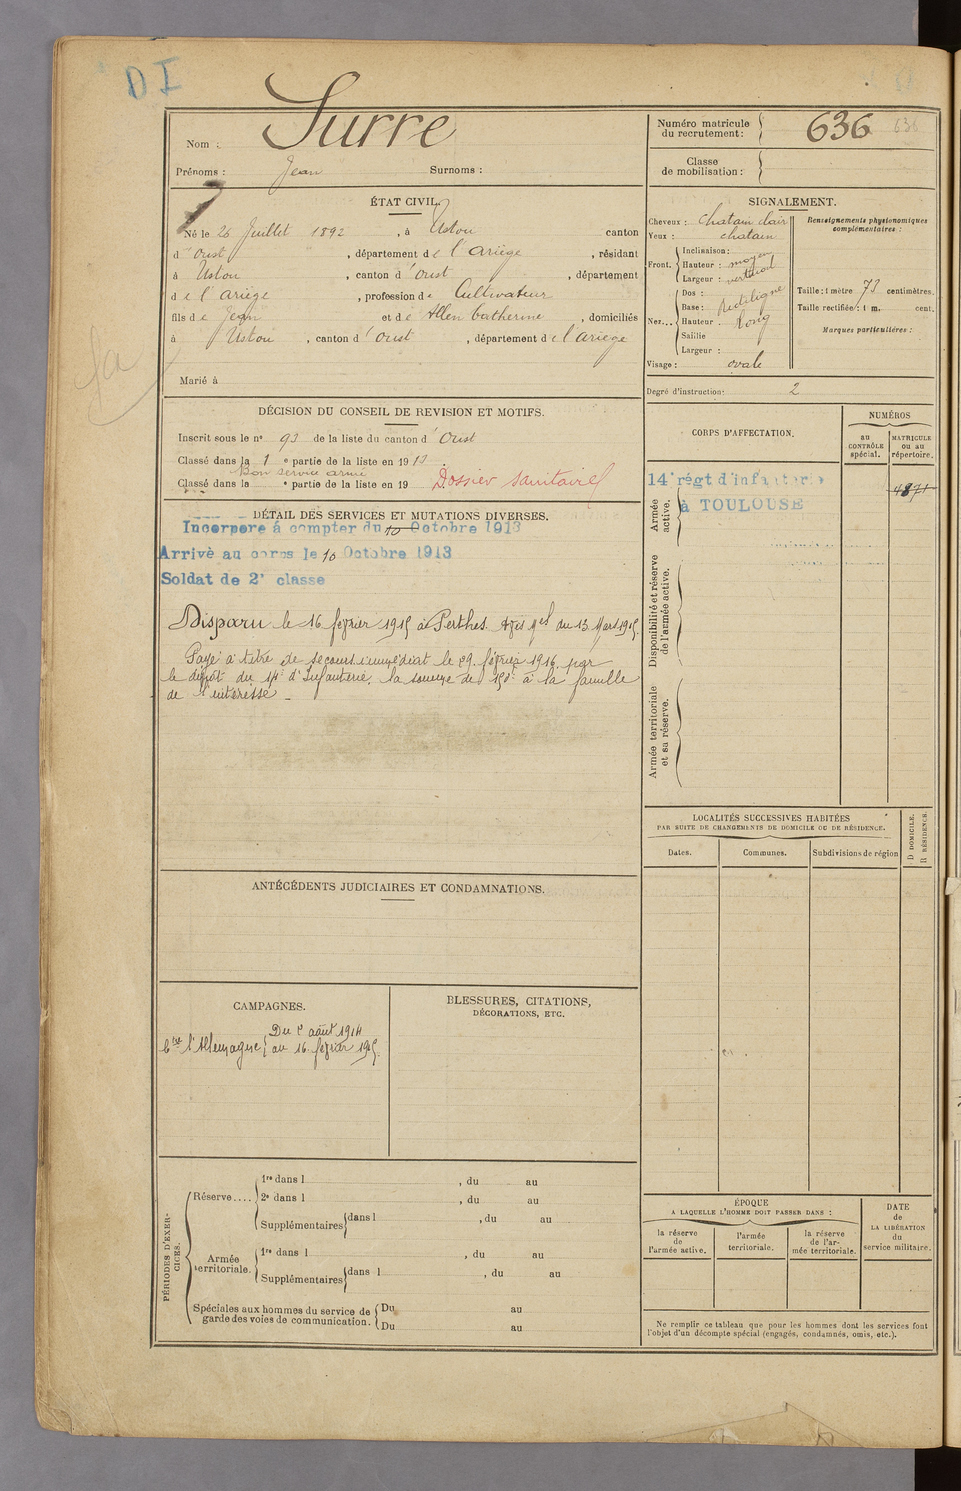 DI
Nom : Surre
Prénoms : Jean Surnoms :
Numéro matricule
du recrutement : 636 636
Classe
de mobilisation :
ÉTAT CIVIL.
Né le 26 Juillet 1892, à Ustou canton
d'Oust, département de l'Ariège, résidant
à Ustou, canton d'Oust, département
de l'Ariège, profession de Cultivateur
fils de Jean et de Allen Catherine, domiciliés
à Ustou, canton d'Oust, département de l'Ariège
Marié à
SIGNALEMENT.
Cheveux : chatain clair
Yeux : chatain
Inclinaison :
Front. Hauteur : moyen
Largeur : vertical
Dos :
Base : Rectiligne
Nez... Hauteur : long
Saillie
Largeur :
Visage : ovale
Renseignements physionomiques
complémentaires :
Taille : 1 mètre 73 centimètres.
Taille rectifiée : 1 m. cent.
Marques particulières :
Degré d'instruction : 2
DÉCISION DU CONSEIL DE REVISION ET MOTIFS.
Inscrit sous le n° 93 de la liste du canton d'Oust
Classé dans la 1e partie de la liste en 1913
Bon service armé
Classé dans la e partie de la liste en 19
Dossier sanitaire
DÉTAIL DES SERVICES ET MUTATIONS DIVERSES.
Incorporé à compter du 10 Octobre 1913
Arrivé au corps le 10 Octobre 1913
Soldat de 2e classe
Disparu le 16 février 1915 à Perthes. Avis Mel du 13 Mars 1915.
Payé à titre de secours immédiat le 29 février 1916 par
le dépôt du 14e d'Infanterie, la somme de 150f à la famille
de l'intéressé
CORPS D'AFFECTATION.
NUMÉROS
au
CONTRÔLE
spécial.
MATRICULE
ou au
répertoire.
Armée
active.
14e régt d'infanterie
à TOULOUSE
4871
Disponibilité et réserve
de l'armée active.
Armée territoriale
et sa réserve.
LOCALITÉS SUCCESSIVES HABITÉES
PAR SUITE DE CHANGEMENTS DE DOMICILE OU DE RÉSIDENCE.
Dates.
Communes.
Subdivisions de région
D DOMICILE.
R RÉSIDENCE.
ANTÉCÉDENTS JUDICIAIRES ET CONDAMNATIONS.
CAMPAGNES.
Ctre l'Allemagne Du 2 août 1914
au 16 février 1915.
BLESSURES, CITATIONS,
DÉCORATIONS, ETC.
PÉRIODES D'EXER-
CICES.
Réserve.... 1re dans l , du au
2e dans l , du au
Supplémentaires dans l , du au
Armée
territoriale. 1re dans l , du au
Supplémentaires dans l , du au
Spéciales aux hommes du service de
garde des voies de communication. Du au
Du au
ÉPOQUE
A LAQUELLE L'HOMME DOIT PASSER DANS :
la réserve
de
l'armée active.
l'armée
territoriale.
la réserve
de l'ar-
mée territoriale.
DATE
de
LA LIBÉRATION
du
service militaire.
Ne remplir ce tableau que pour les hommes dont les services font
l'objet d'un décompte spécial (engagés, condamnés, omis, etc.).